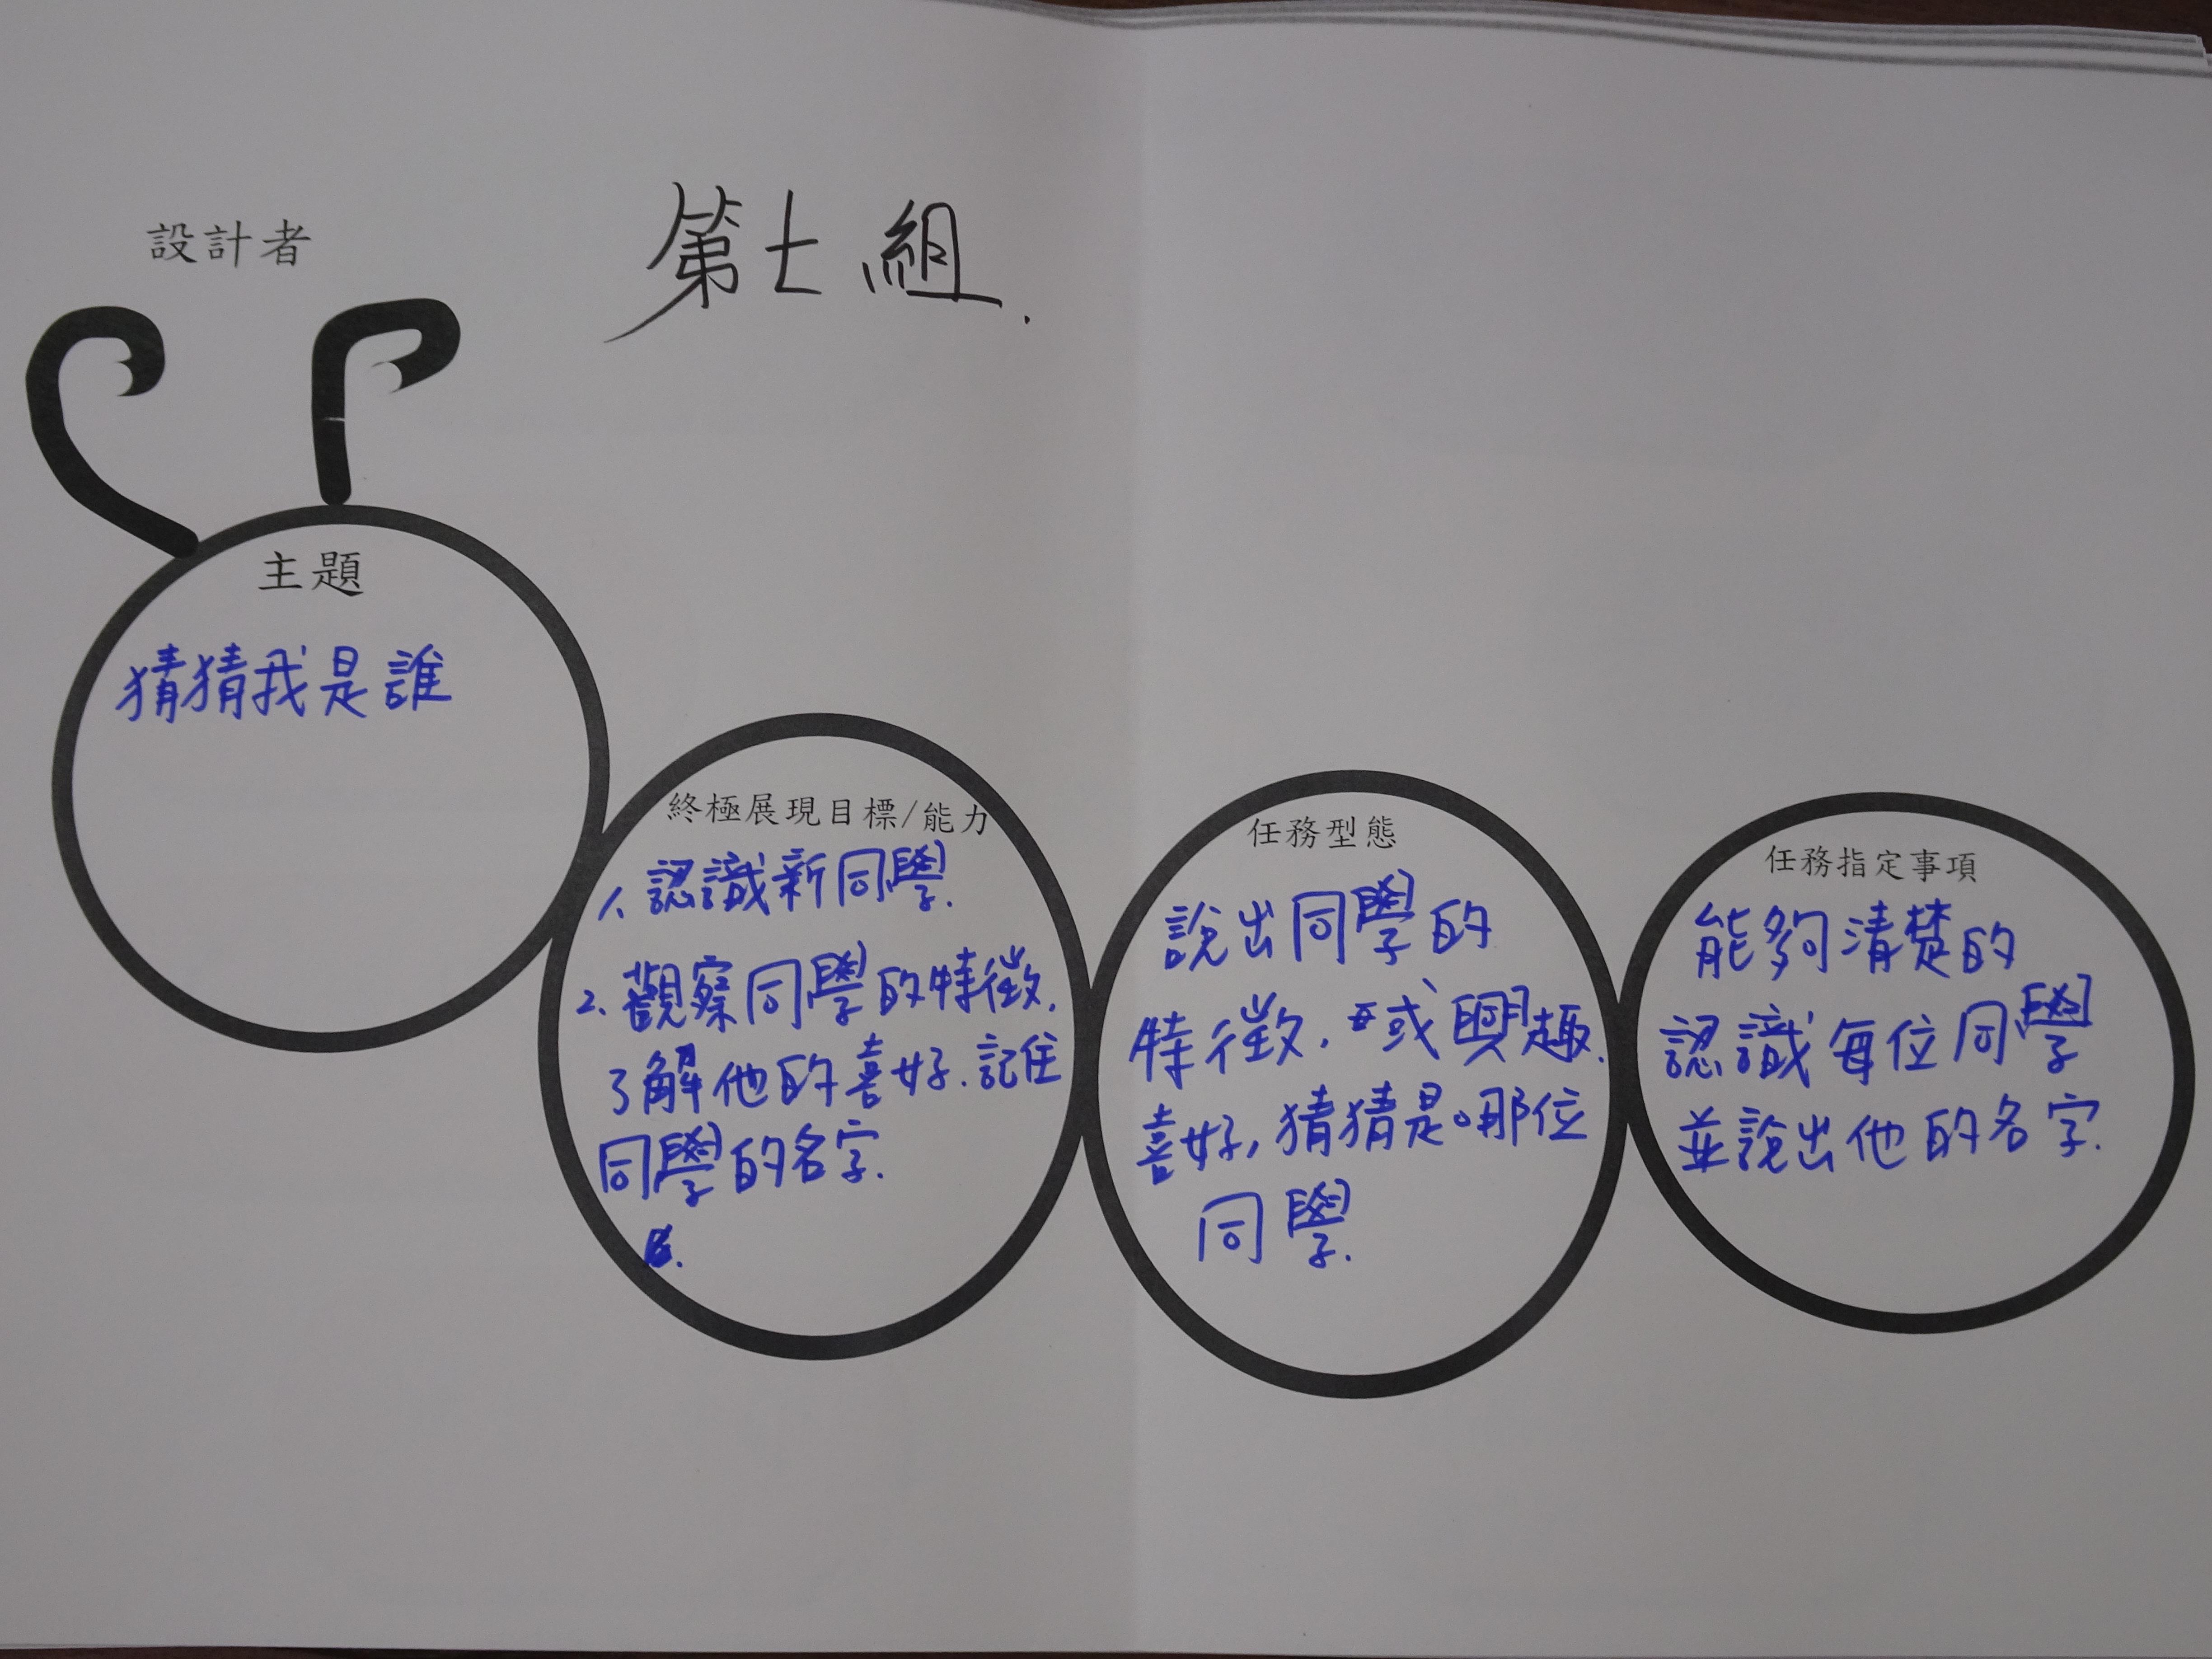 設計者
第七組.
主題
猜猜我是誰
終極展現目標/能力
1、認識新同學.
2、觀察同學的特徵.
了解他的喜好.記住
同學的名字.
任務型態
說出同學的
特徵,或興趣.
喜好,猜猜是哪位
同學.
任務指定事項
能夠清楚的
認識每位同學
並說出他的名字.